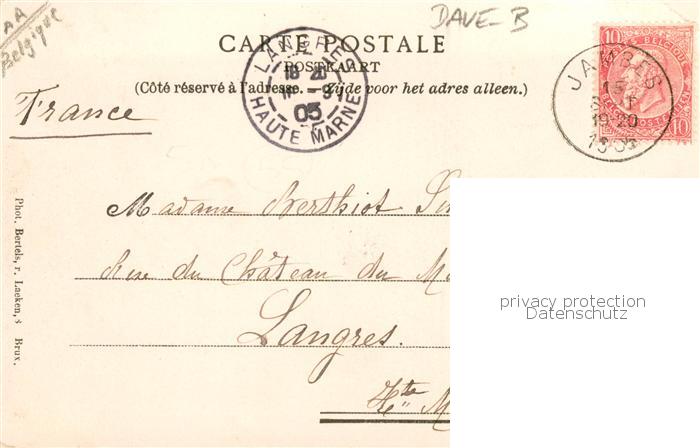 AA
Belgique
DAVE-B
CARTE POSTALE
POSTKAART
(Côté réservé à l'adresse. — Zijde voor het adres alleen.)
LANGRES
18 20
03
HAUTE MARNE
10
10
JAMBES
15
19-20
France
Madame Berthiot
Rue du Château du
Langres.
Hte M
Phot. Bertels, r. Laeken, 8 Brux.
privacy protection
Datenschutz